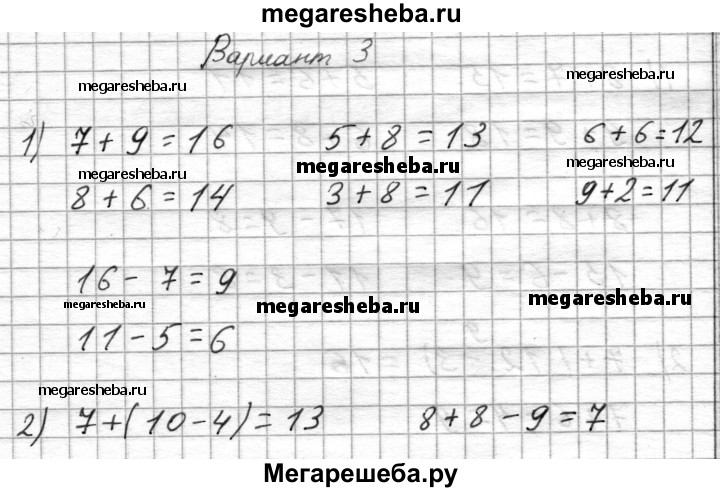 megaresheba.ru
Вариант 3
megaresheba.ru megaresheba.ru
1) 7 + 9 = 16 5 + 8 = 13 6 + 6 = 12
megaresheba.ru megaresheba.ru megaresheba.ru
8 + 6 = 14 3 + 8 = 11 9 + 2 = 11
16 - 7 = 9
megaresheba.ru megaresheba.ru megaresheba.ru
11 - 5 = 6
megaresheba.ru
2) 7 + (10 - 4) = 13 8 + 8 - 9 = 7
Мегарешеба.ру